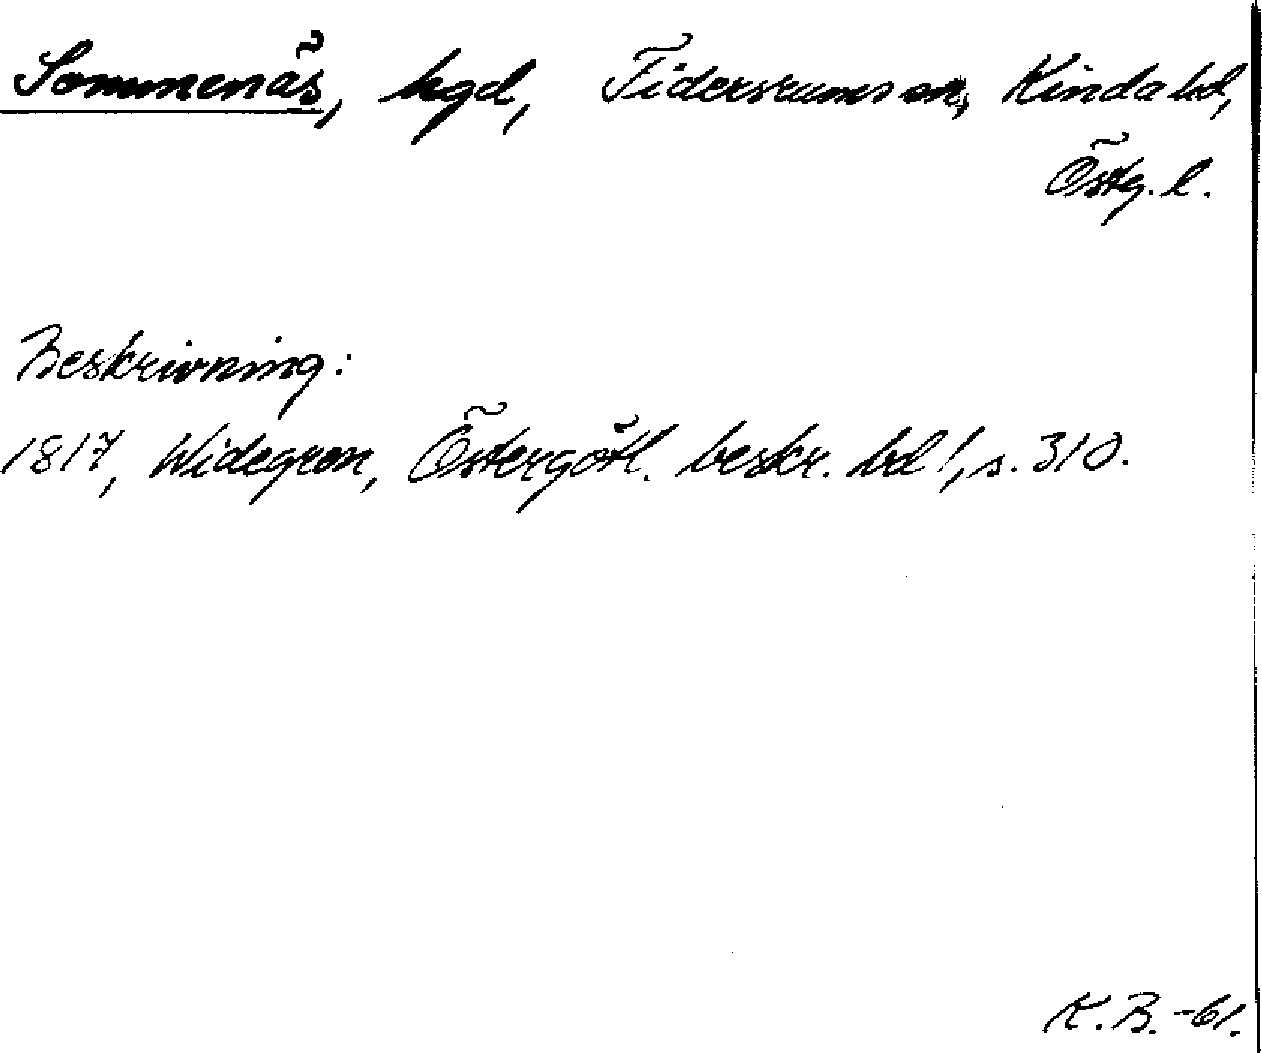 Sommenäs, hgd, Tidersrums sn, Kinda hd,
Östg. l.
Beskrivning:
1817, Widegren, Östergötl. beskr. bd 1, s. 310.
K. B. -61.